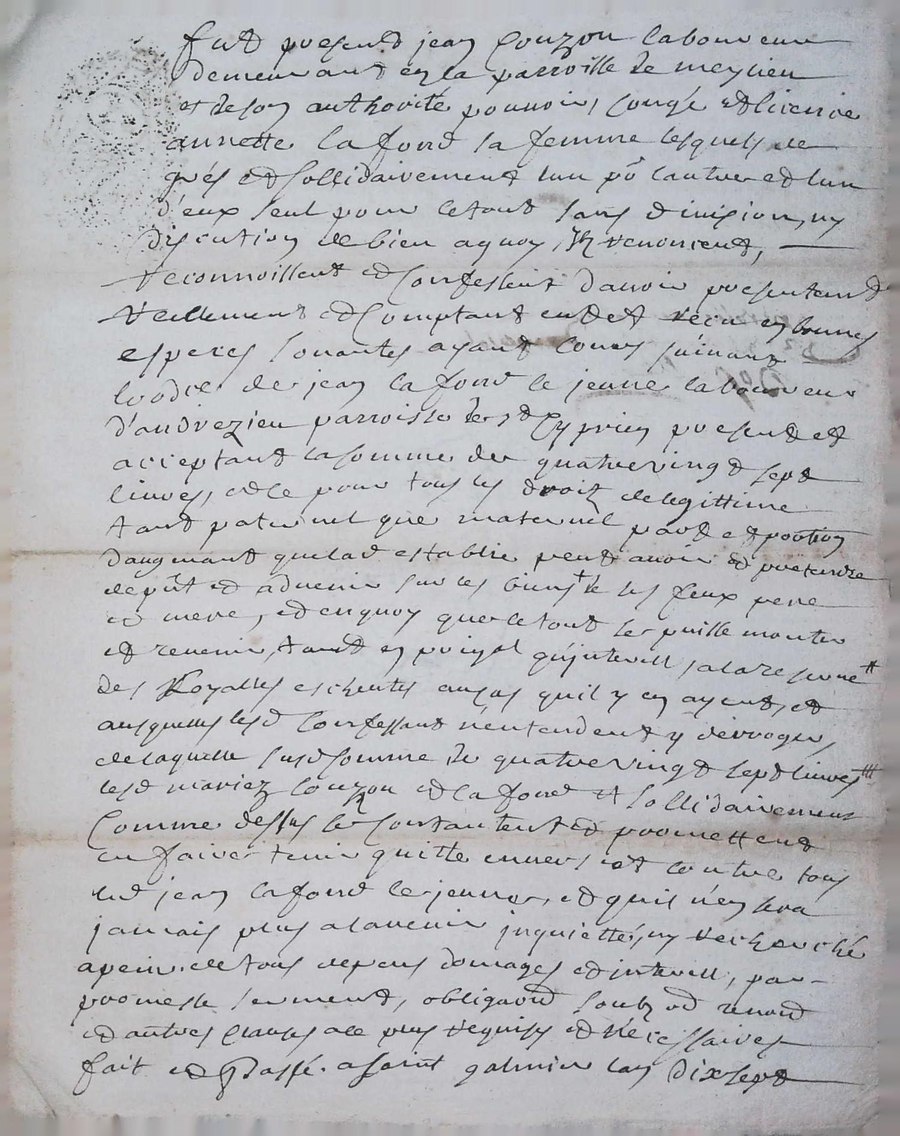 fut present jean Couzon laboureur
demeurant en la parroisse de meylieu
et de son authorité pouvoir, congé et licence
annette lafond sa femme lesquels de
grés et sollidairement lun pō lautre et lun
d'eux seul pour le tout sans division, ny
discution de bien a quoy, ils renoncent,
reconnoissent et confessent davoir presentemt
reellement et comptant eu et receu en bonnes
especes sonantes ayant cours suivant
lordce de jean lafond le jeune laboureur
d'andrezieu parroisse de st Cyprien present et
acceptant la somme de quatre vingt sept
livres, et ce pour tous les droitz de legittime
tant paternel que maternel part et portion
daugmant quelad establie peut avoir et pretendre
de pnt et advenir sur les biens de ses feux pere
et mere, et en quoy que le tout se puisse monter
et revenir, tant en prinpal qu'interest, sa la reserve
des Loyalles escheutes au cas quil y en ayent, et
ausquelles lesd Confessant n'entendent y derroger,
de laquelle susd somme de quatre vingt sept livres
lesd mariez Couzon et lafond et sollidairement
Comme dessus se contantent et promettent
en faire tenir quitte envers et contre tous
led jean lafond le jeune, et quil n'en sera
jamais plus a lavenir inquietté, ny recherché
a peine de tous depens domages et interest, par
promesse serment, obligaōn soubz ōn renon
et autres clauses a ce plus requises et necessaires
fait et Passé a saint galmier lan dix sept